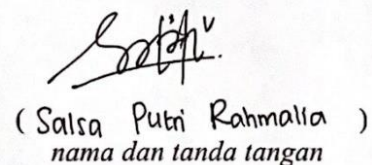 ( Salsa Putri Rahmalia )
nama dan tanda tangan